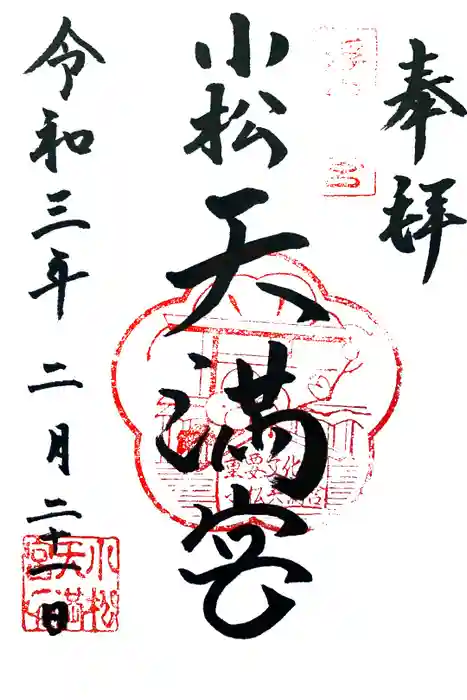 奉拝
小松天満宮
令和三年 二月二十一日
小松
天満
宮
重要文化